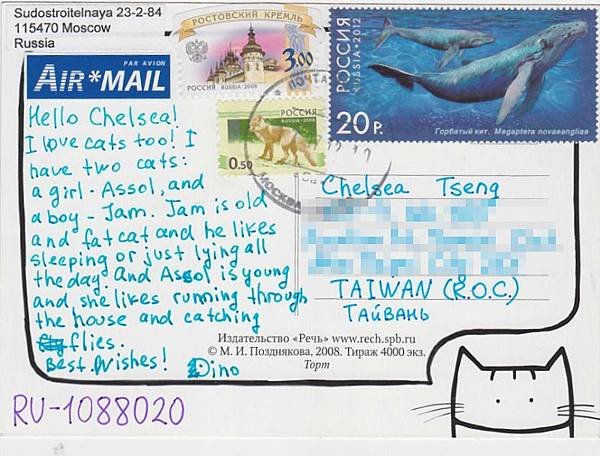 Sudostroitelnaya 23-2-84
115470 Moscow
Russia
PAR AVION
AIR*MAIL
РОСТОВСКИЙ КРЕМЛЬ
3.00
РОССИЯ RUSSIA-2009
РОССИЯ
RUSSIA-2008
0.50
РОССИЯ
RUSSIA•2012
20 Р.
Горбатый кит. Megaptera novaeangliae
ПОЧТА
МОСКВА
Hello Chelsea!
I love cats too! I
have two cats:
a girl - Assol, and
a boy - Jam. Jam is old
and fat cat and he likes
sleeping or just lying all
the day. And Assol is young
and she likes running through
the house and catching
flies.
Best wishes! Dino
Chelsea Tseng
TAIWAN (R.O.C.)
ТАЙВАНЬ
Издательство «Речь» www.rech.spb.ru
© М. И. Позднякова, 2008. Тираж 4000 экз.
Торт
RU-1088020